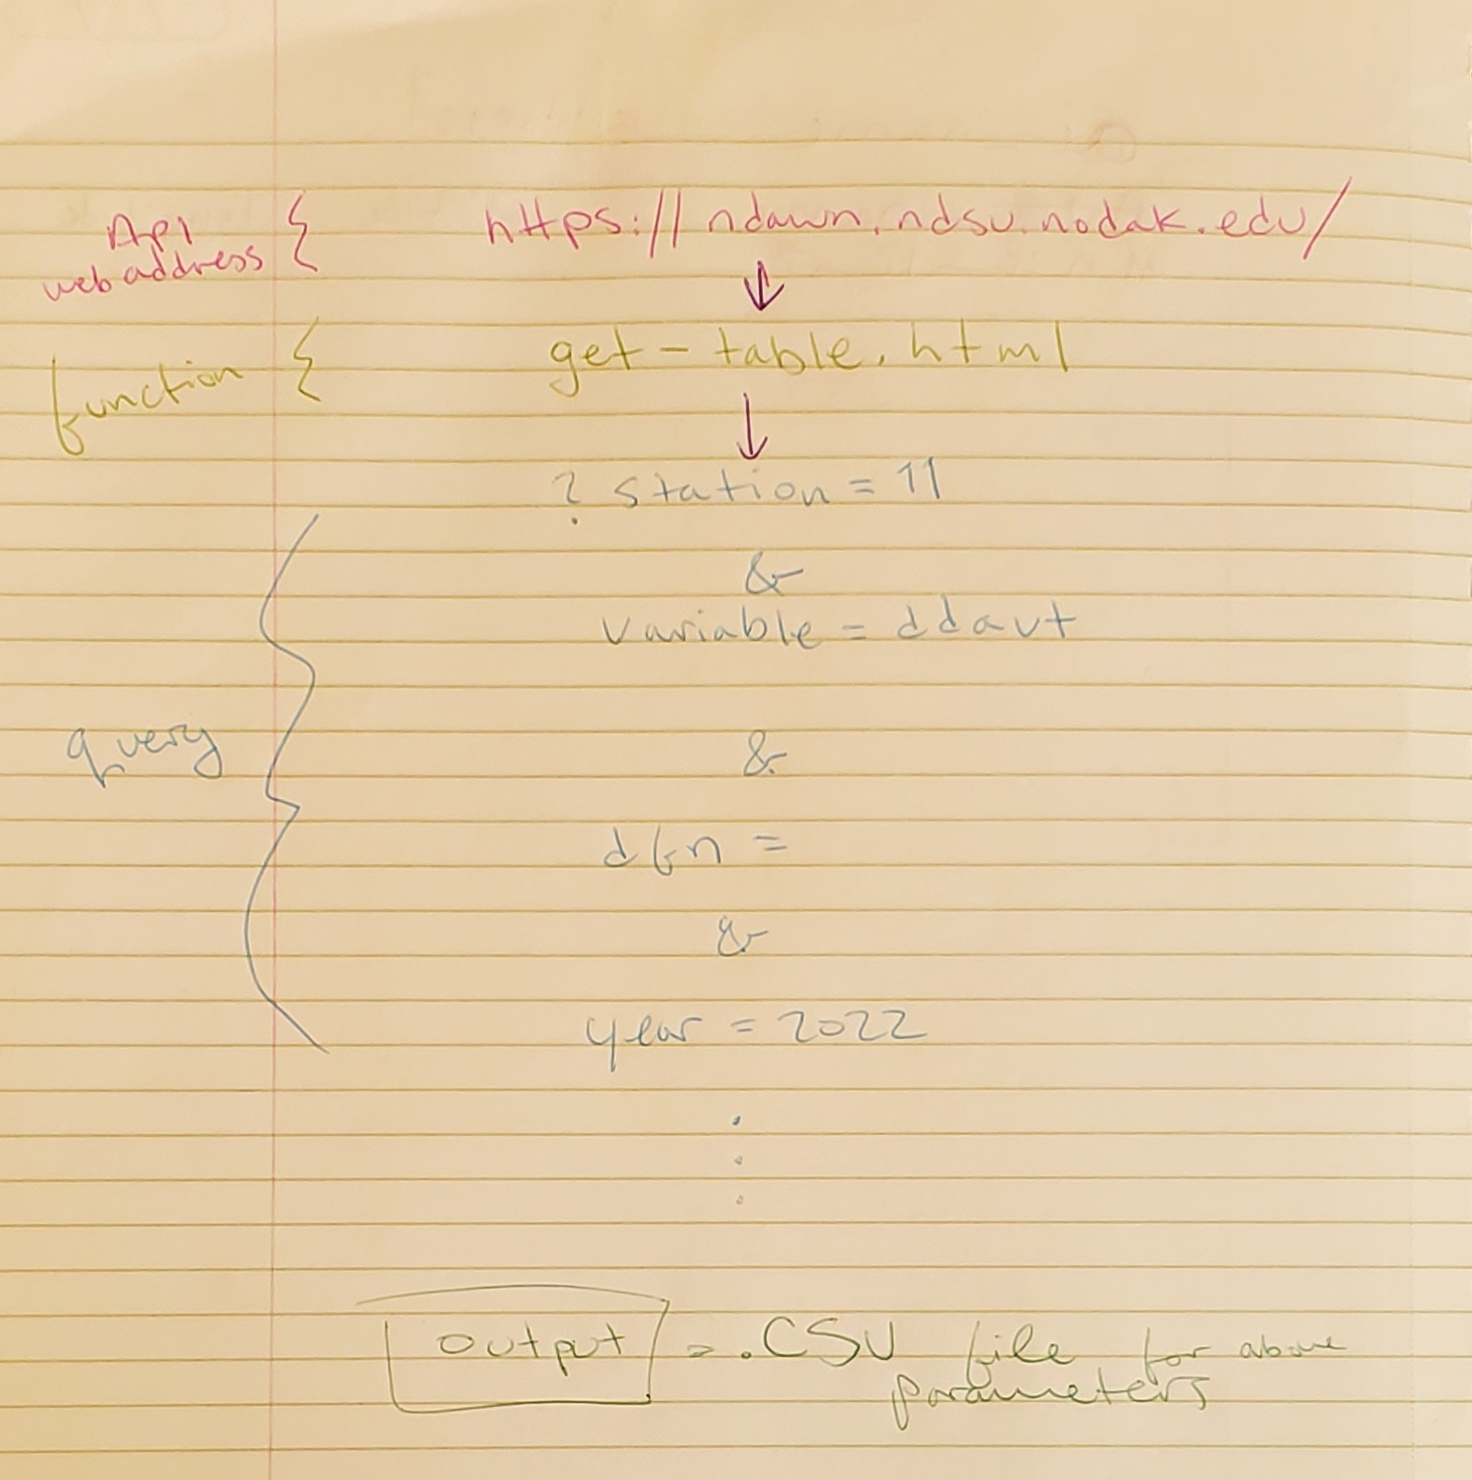 Api
web address { https://ndawn.ndsu.nodak.edu/
function { get-table.html
?station=11
&
variable=ddavt
&
query {
dfn=
&
year=2022
.
.
.
output = .CSV file for above
parameters